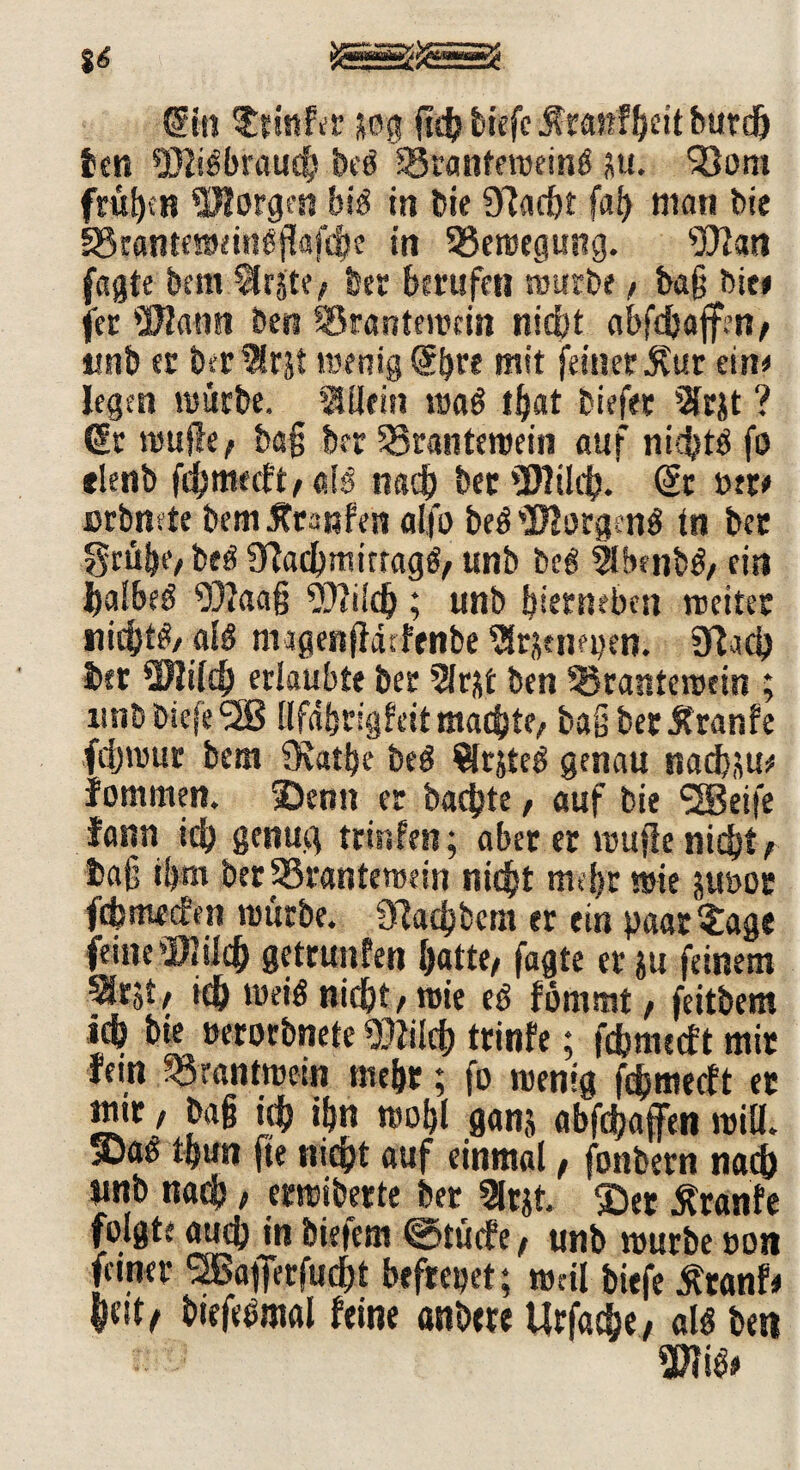 36
Ein Trinker zog sich diese Krankheit durch
den Misbrauch des Branteweins zu. Vom
frühen Morgen bis in die Nacht sah man die
Branteweinsflasche in Bewegung. Man
sagte dem Arzte, der berufen wurde, daß die⸗
ser Mann den Brantewein nicht abschaffen,
und er der Arzt wenig Ehre mit seiner Kur ein⸗
legen würde. Allein was that dieser Arzt ?
Er wuste, daß der Brantewein auf nichts so
elend schmeckt, als nach der Milch. Er ver⸗
ordnete dem Kranken also des Morgens in der
Frühe, des Nachmittags, und des Abends, ein
halbes Maaß Milch ; und hierneben weiter
nichts, als magenstärkende Arzeneyen. Nach
der Milch erlaubte der Arzt den Brantewein ;
und diese W llfährigkeit machte, daß der Kranke
schwur dem Rathe des Arztes genau nachzu⸗
kommen. Denn er dachte, auf die Weise
kann ich genug trinken; aber er wuste nicht,
daß ihm der Brantewein nicht mehr wie zuvor
schmecken würde. Nachdem er ein paar Tage
seine Milch getrunken hatte, sagte er zu seinem
Arzt, ich weis nicht, wie es kömmt, seitdem
ich die verordnete Milch trinke ; schmeckt mir
kein Brantwein mehr ; so wenig schmeckt er
mir, daß ich ihn wohl ganz abschaffen will.
Das thun sie nicht auf einmal, sondern nach
und nach, erwiderte der Arzt. Der Kranke
folgte auch in diesem Stücke, und wurde von
seiner Wassersucht befreyet; weil diese Krank⸗
heit, diesesmal keine andere Ursache, als den
Mis⸗